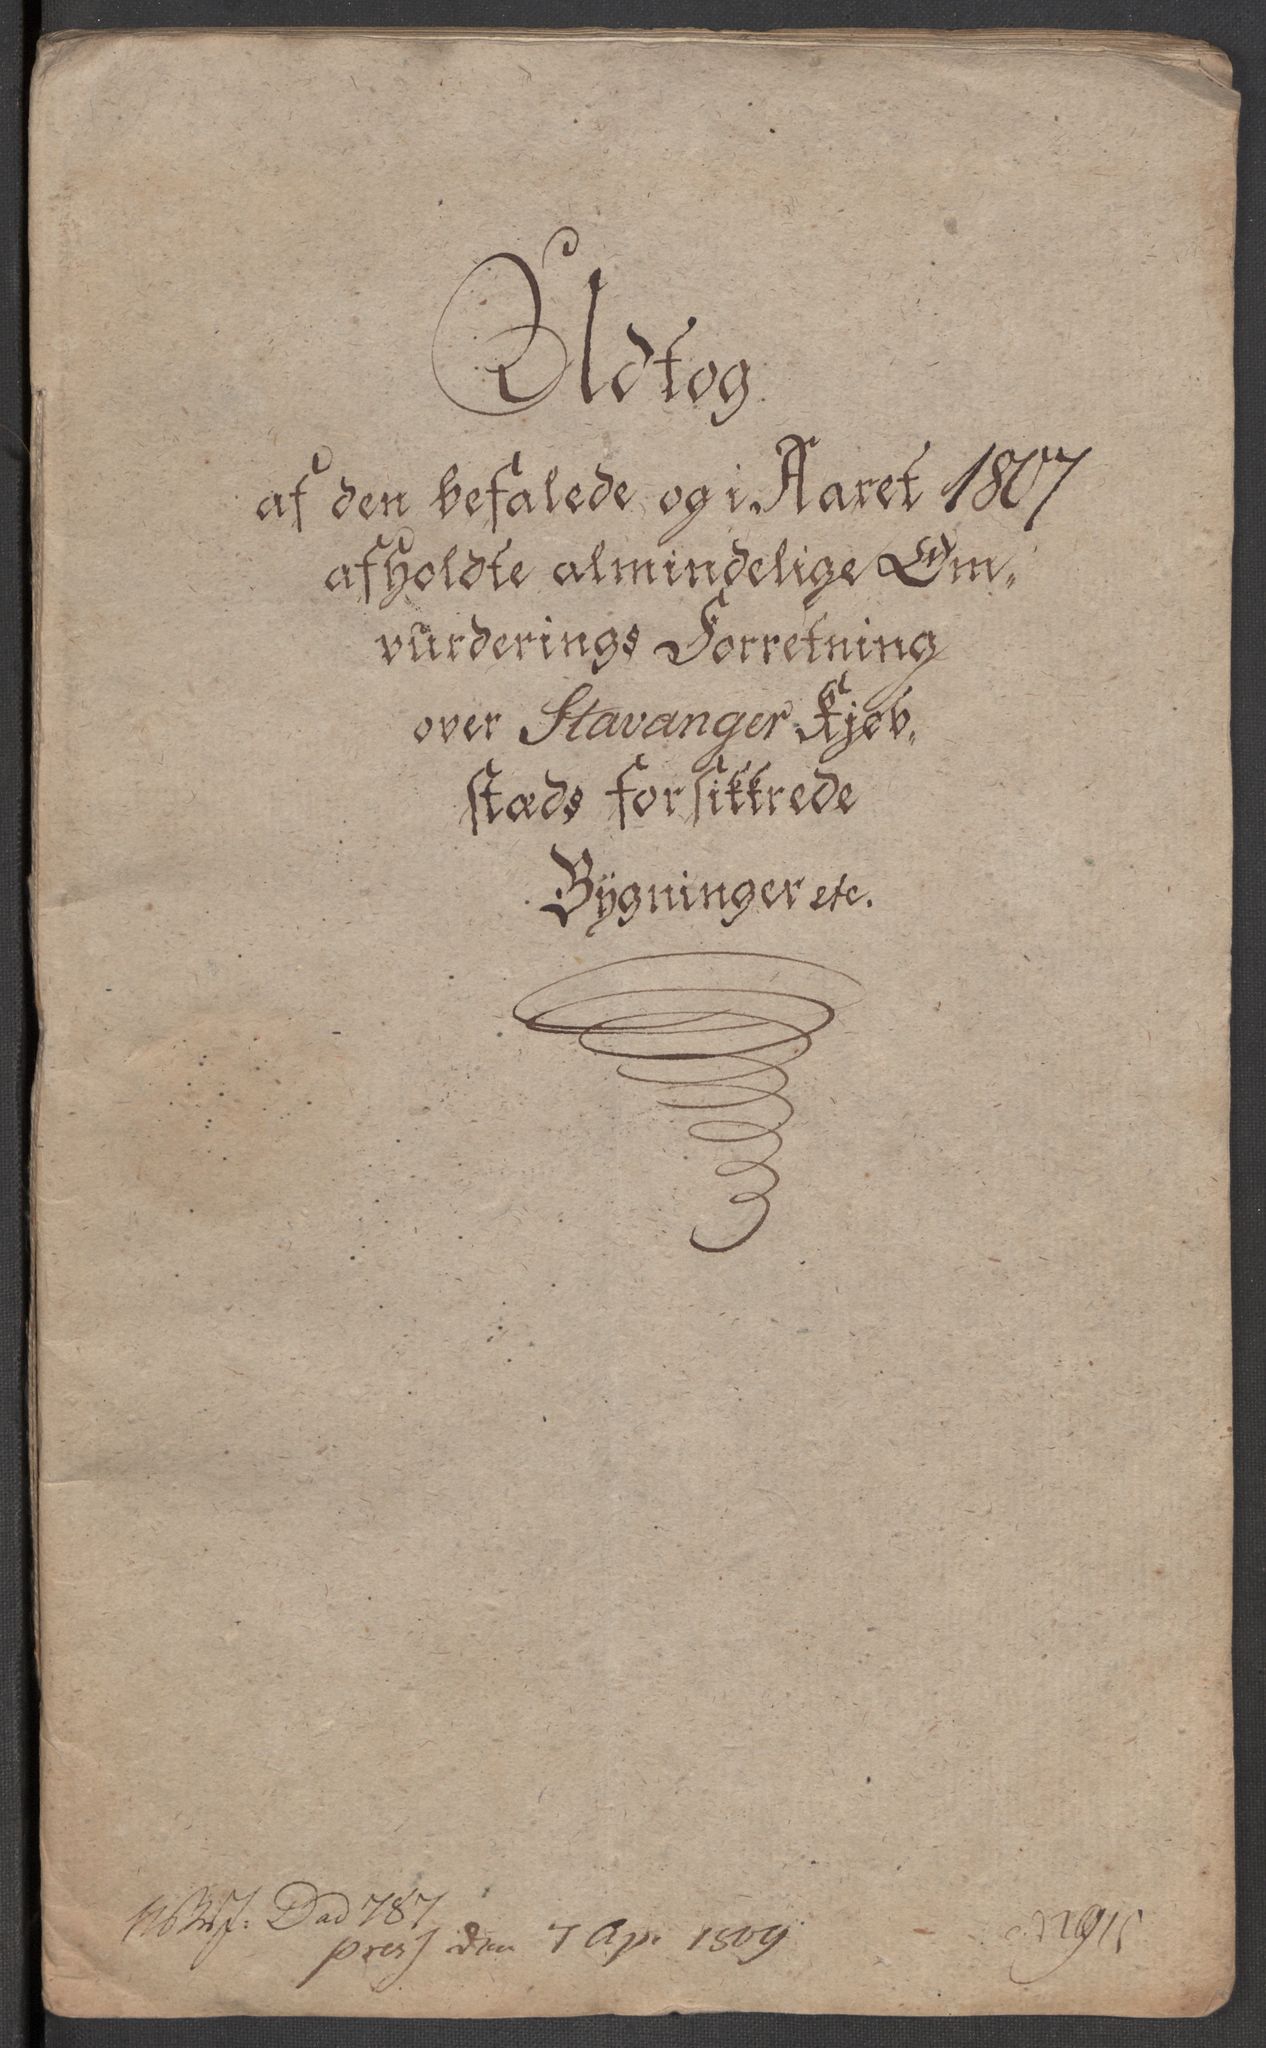 Udtog
af den befalede og i Aaret 1807
afholdte almindelige Om-
vurderings Forretning
over Stavanger Kjøb-
stæds forsikkrede
Bygninger etc.
Dad 787
præs den 7 Ap. 1809